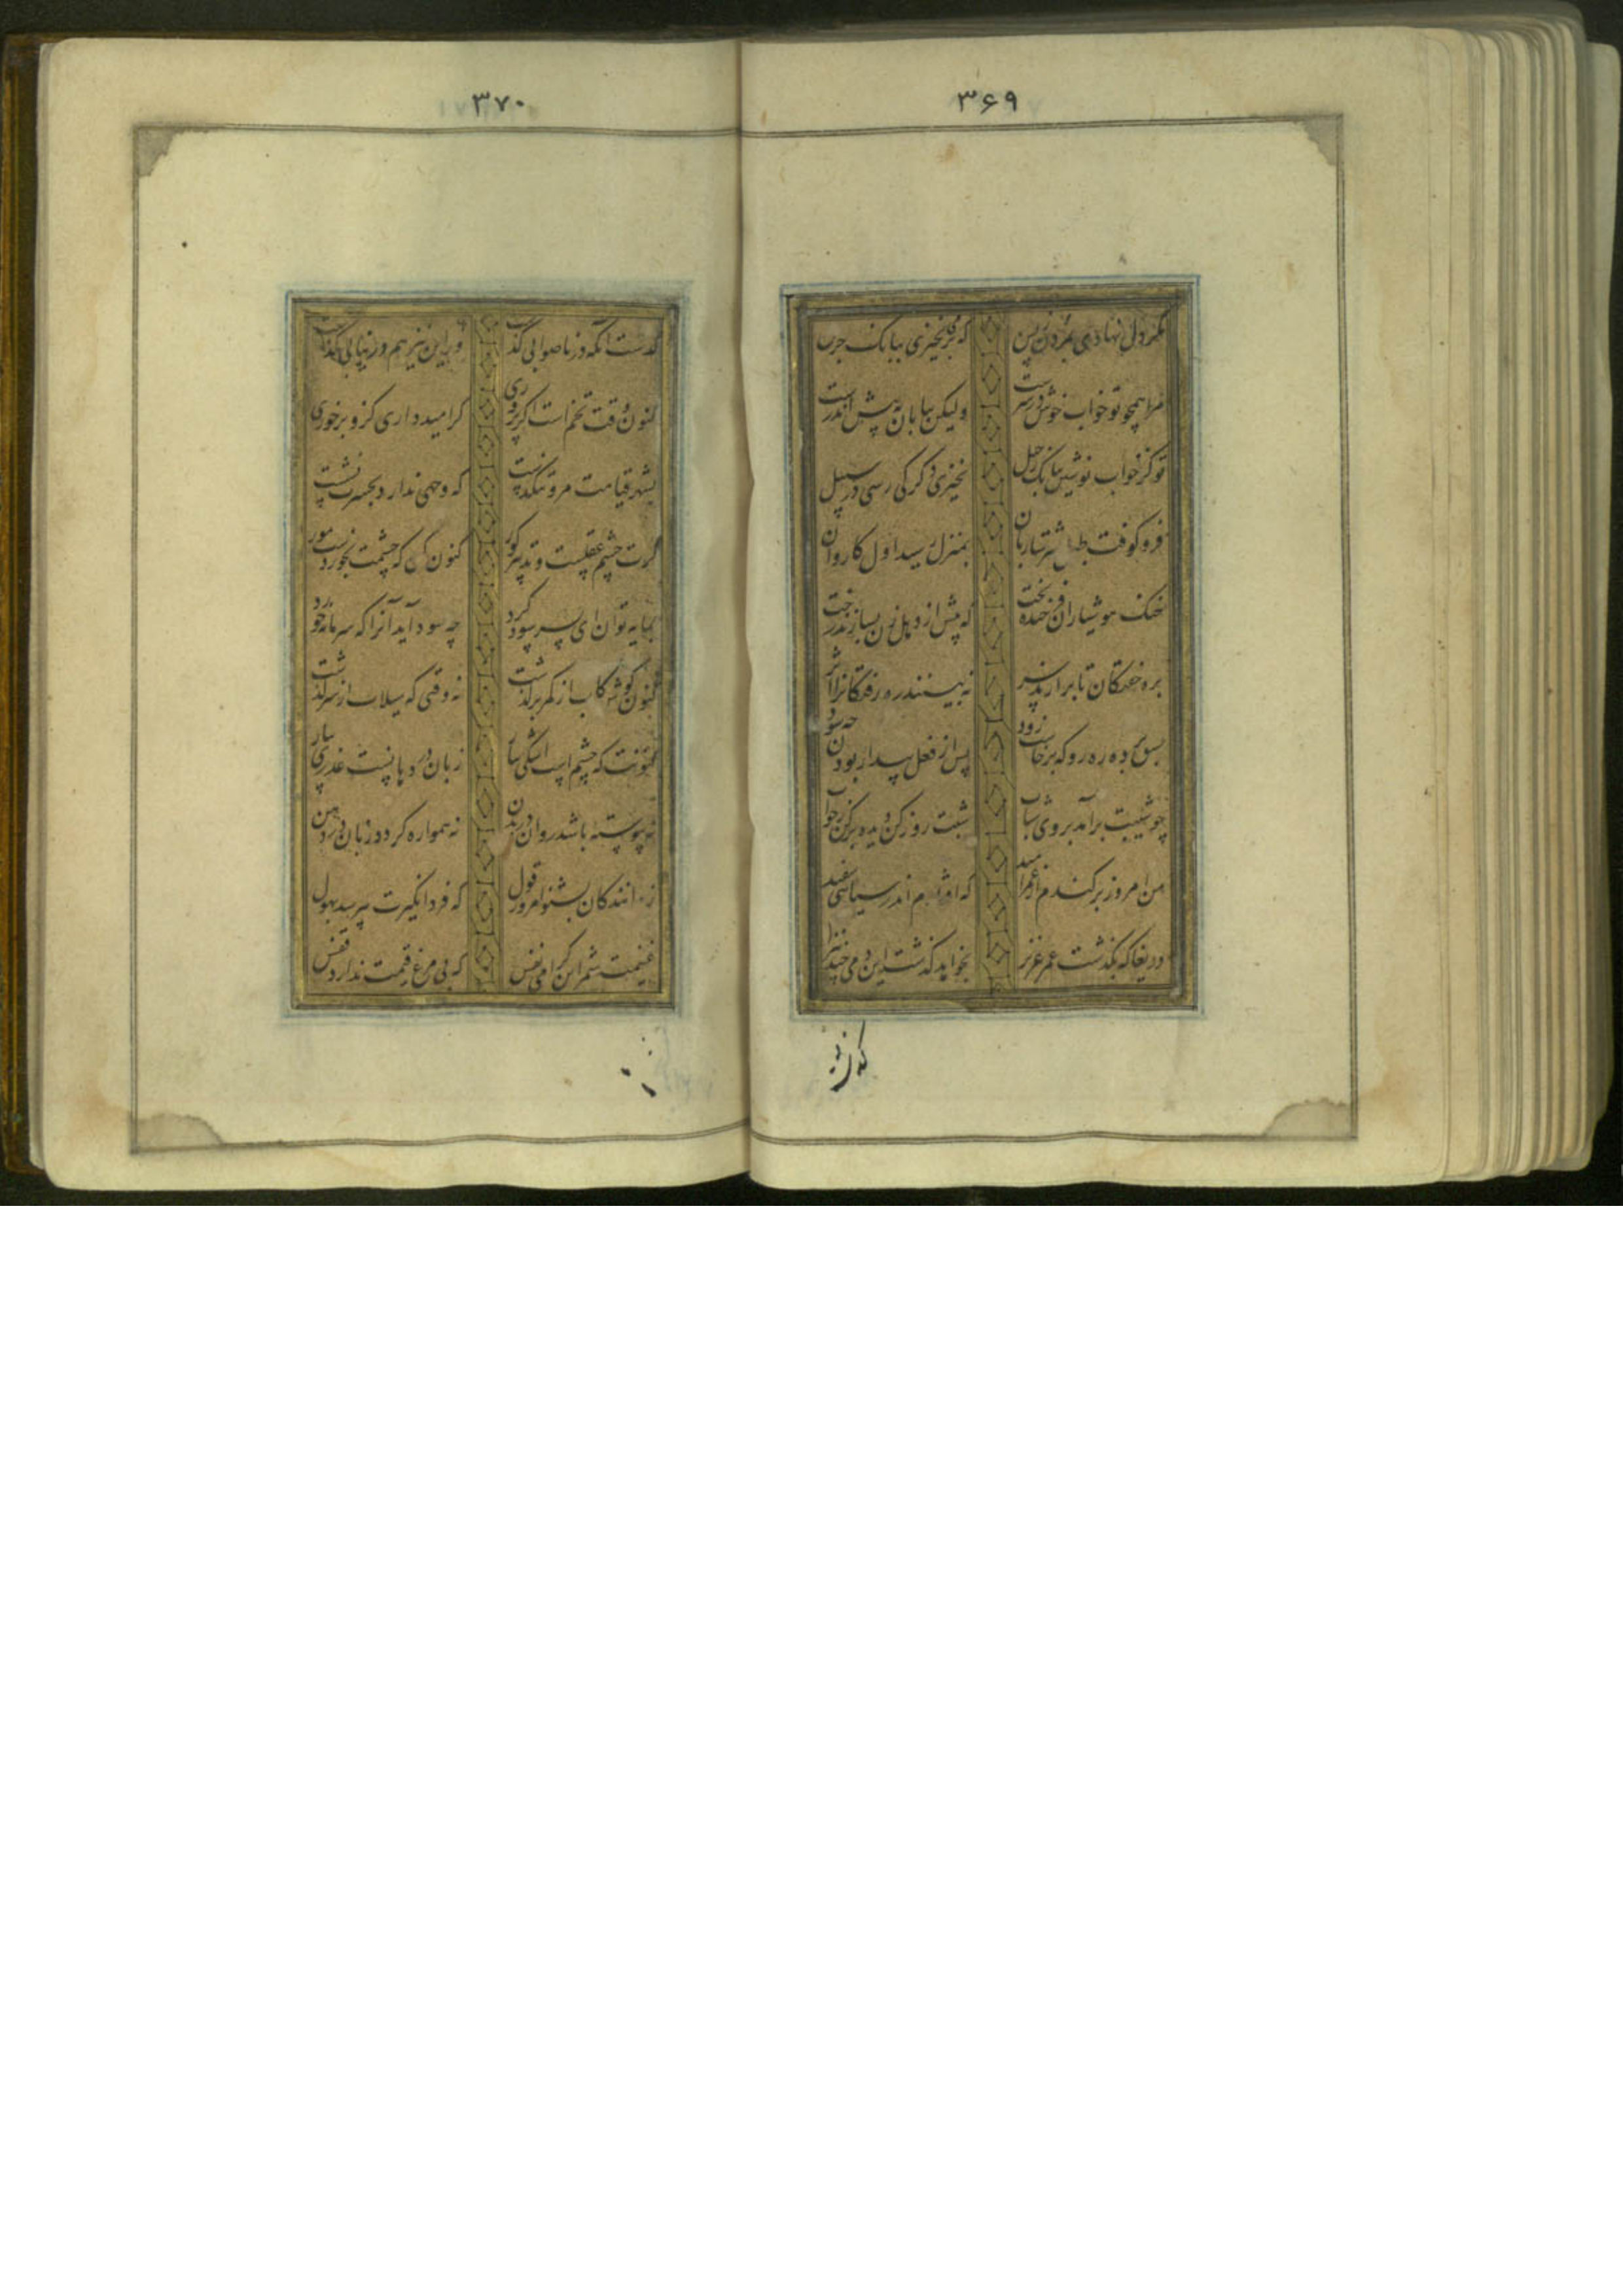 ۳۶۹
مگر دل نهادی بمردن ز پس که برمی نخیزی ببانک جرس
مرا همچو تو خواب خوش در سرست ولیکن بیابان به پیش اندرست
تو کز خواب نوشین ببانک رحیل نخیزی دگر کی رسی در سبیل
فرو کوفت طبل شتر ساربان بمنزل رسید اول کاروان
خنک هوشیاران فرخنده بخت که پیش از دهل زن بسازند رخت
بره خفتگان تا برآرند سر نه بینند ره رفتگان را اثر
سبق برده ره رو که برخاست زود پس از نقل بیدار بودن چه سود
چو شیبت برآمد بروی شباب شبت روز کن دیده برکن ز خواب
من امروز برکندم از عمر امید که افتادم اندر سیاهی سفید
دریغا که بگذشت عمر عزیز بخواهد گذشت این دمی چند نیز
۳۷۰
گذشت آنکه در ناصوابی گذشت ور این نیز هم در نیابی گذشت
کنون وقت تخم است اگر پروری گر امید داری کزو برخوری
بشهر قیامت مرو تنگدست که وجهی ندارد بحسرت نشست
گرت چشم عقلست و تدبیر گور کنون کن که چشمت نخوردست مور
بمایه توان ای پسر سود کرد چه سود آید آنرا که سرمایه خورد
کنون کوش کاب از کمر برگذشت نه وقتی که سیلاب از سر گذشت
کنونت که چشم است اشکی ببار زبان در دهانست عذری بیار
نه پیوسته باشد روان در بدن نه همواره گردد زبان در دهن
ز دانندگان بشنو امروز قول که فردا نکیرت بپرسد بهول
غنیمت شمر این گرامی نفس که بی مرغ قیمت ندارد قفس